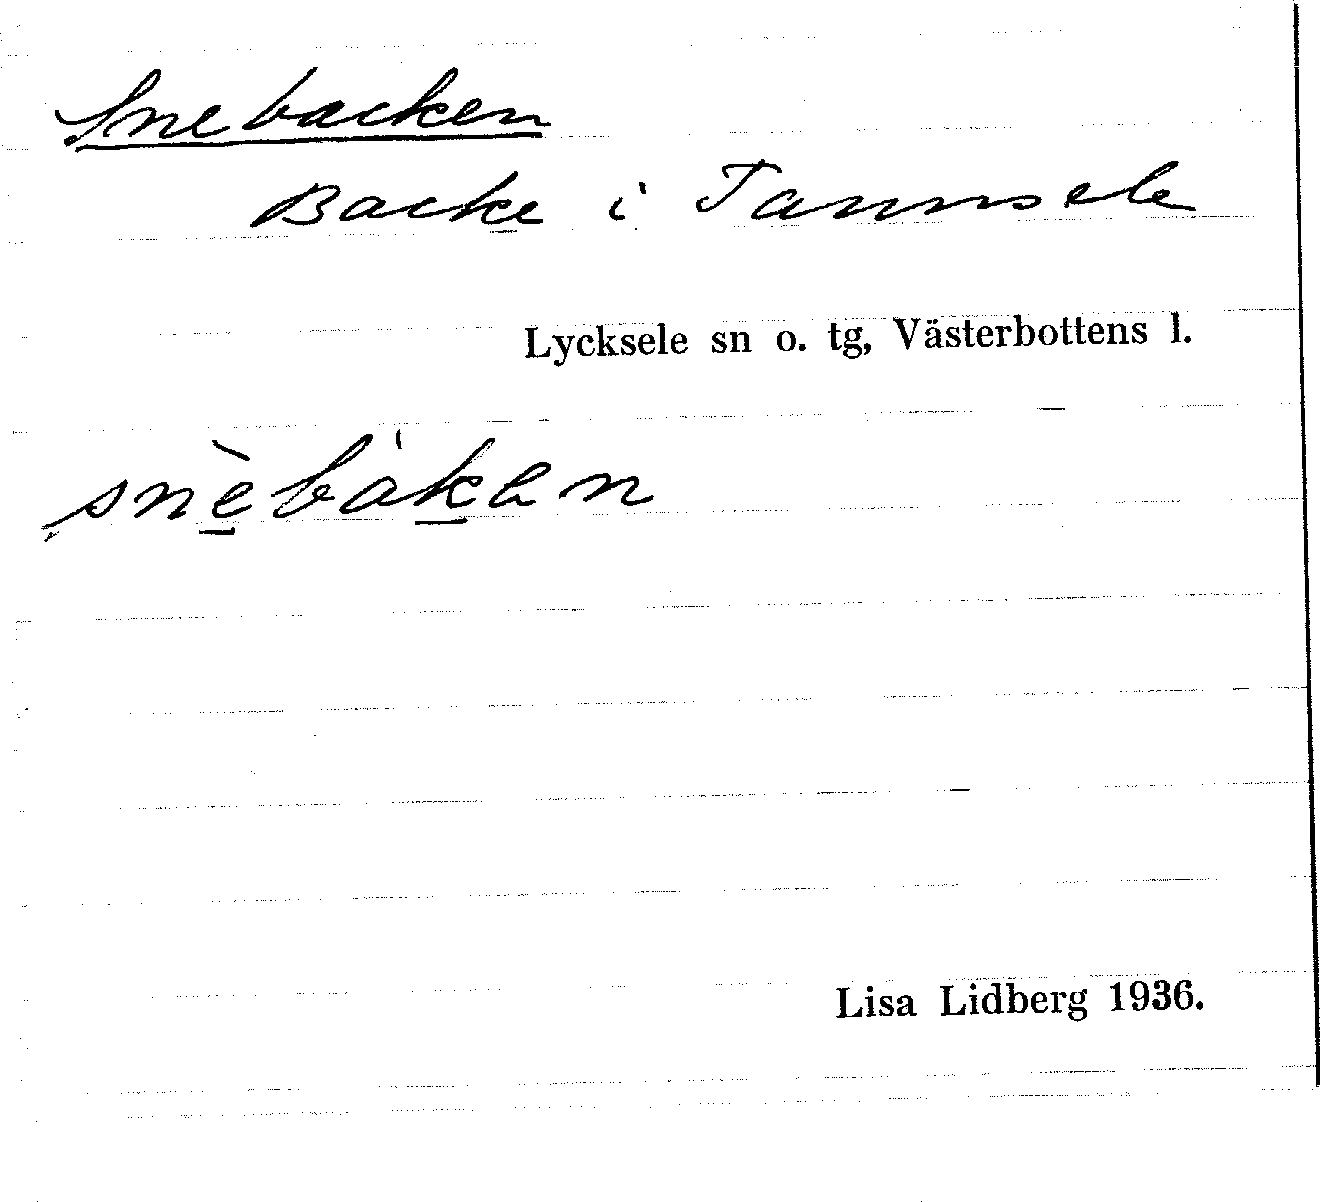 Snebacken
Backe i Tannsele
Lycksele sn o. tg, Västerbottens l.
snèbáken
Lisa Lidberg 1936.